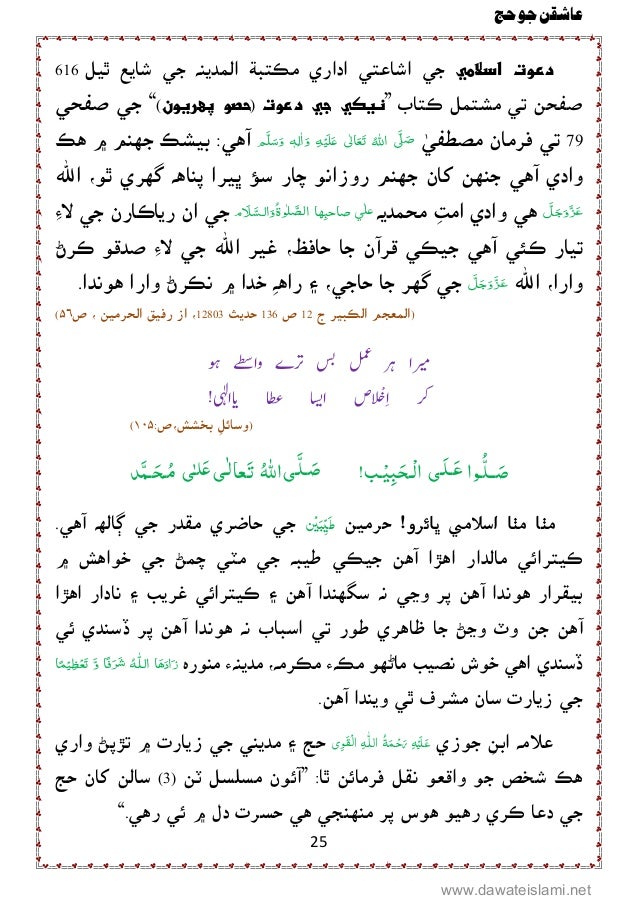 عاشقن جو حج
دعوت اسلامي جي اشاعتي اداري مڪتبة المدينہ جي شايع ٿيل 616
صفحن تي مشتمل ڪتاب ”نيڪي جي دعوت (حصو پهريون)“ جي صفحي
79 تي فرمان مصطفيٰ صَلَّى اللهُ تَعَالٰى عَلَيْهِ وَاٰلِهٖ وَسَلَّم آهي: بيشڪ جهنم ۾ هڪ
وادي آهي جنهن کان جهنم روزانو چار سؤ ڀيرا پناهہ گهري ٿو، الله
عَزَّوَجَلَّ هي وادي امتِ محمديہ علٰی صاحبِها الصَّلٰوةُ وَالسَّلَام جي ان رياڪارن جي لاءِ
تيار ڪئي آهي جيڪي قرآن جا حافظ، غير الله جي لاءِ صدقو ڪرڻ
وارا، الله عَزَّوَجَلَّ جي گهر جا حاجي، ۽ راهِ خدا ۾ نڪرڻ وارا هوندا.
(المعجم الڪبير ج 12 ص 136 حديث 12803، از رفيق الحرمين ، ص۵۶)
میرا ہر عمل بس ترے واسطے ہو
کر اِخْلاص ایسا عطا یاالٰہی!
(وسائلِ بخشش،ص:۱۰۵)
صَلُّوا عَلَى الْحَبِيْب! صَلَّى اللهُ تَعَالٰى عَلٰى مُحَمَّد
مٺا مٺا اسلامي ڀائرو! حرمين طَيِّبَيْن جي حاضري مقدر جي ڳالهہ آهي.
ڪيترائي مالدار اهڙا آهن جيڪي طيبہ جي مٽي چمڻ جي خواهش ۾
بيقرار هوندا آهن پر وڃي نہ سگهندا آهن ۽ ڪيترائي غريب ۽ نادار اهڙا
آهن جن وٽ وڃڻ جا ظاهري طور تي اسباب نہ هوندا آهن پر ڏسندي ئي
ڏسندي اهي خوش نصيب ماڻهو مڪہء مڪرمہ، مدينہء منوره زَادَهَا اللهُ شَرَفًا وَّ تَعْظِيْمًا
جي زيارت سان مشرف ٿي ويندا آهن.
علامہ ابنِ جوزي عَلَيْهِ رَحْمَةُ اللهِ الْقَوِى حج ۽ مديني جي زيارت ۾ تڙپڻ واري
هڪ شخص جو واقعو نقل فرمائن ٿا: ”آئون مسلسل ٽن (3) سالن کان حج
جي دعا ڪري رهيو هوس پر منهنجي هي حسرت دل ۾ ئي رهي.“
25
www.dawateislami.net